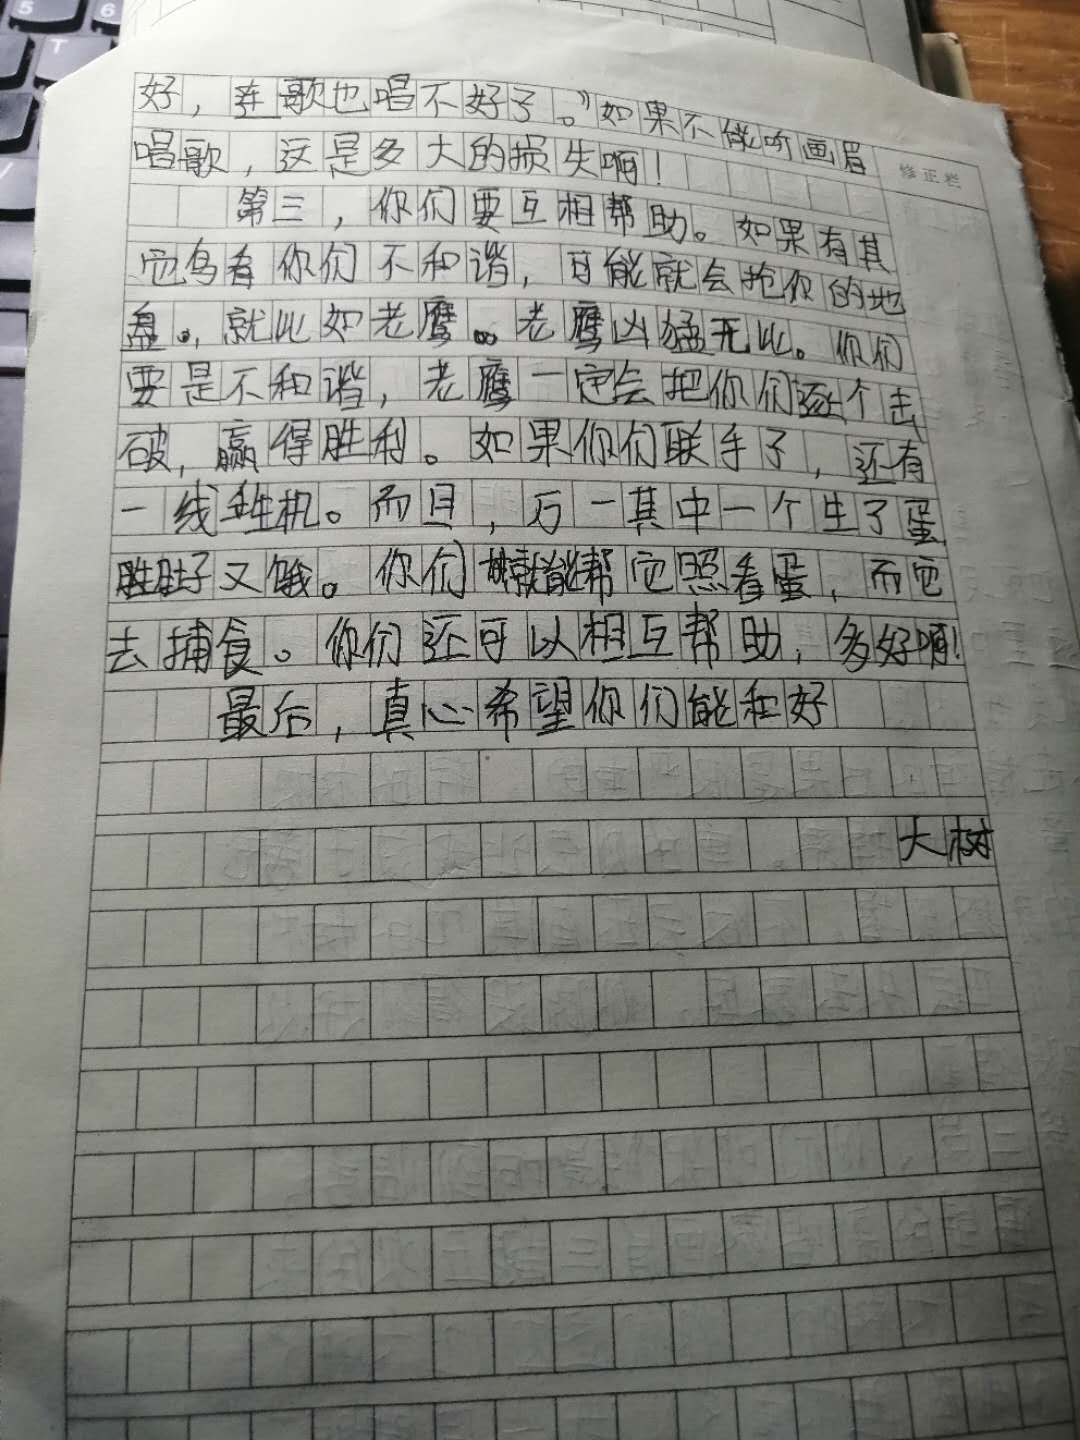 好，连歌也唱不好了。”如果不能听画眉
修正栏
唱歌，这是多大的损失啊！
第三，你们要互相帮助。如果有其
它鸟看你们不和谐，可能就会抢你的地
盘，就比如老鹰。老鹰凶猛无比。你们
要是不和谐，老鹰一定会把你们逐个击
破，赢得胜利。如果你们联手了，还有
一线生机。而且，万一其中一个生了蛋
肚子又饿。你们就能帮它照看蛋，而它
去捕食。你们还可以相互帮助，多好啊！
最后，真心希望你们能和好
大树
5
6
T